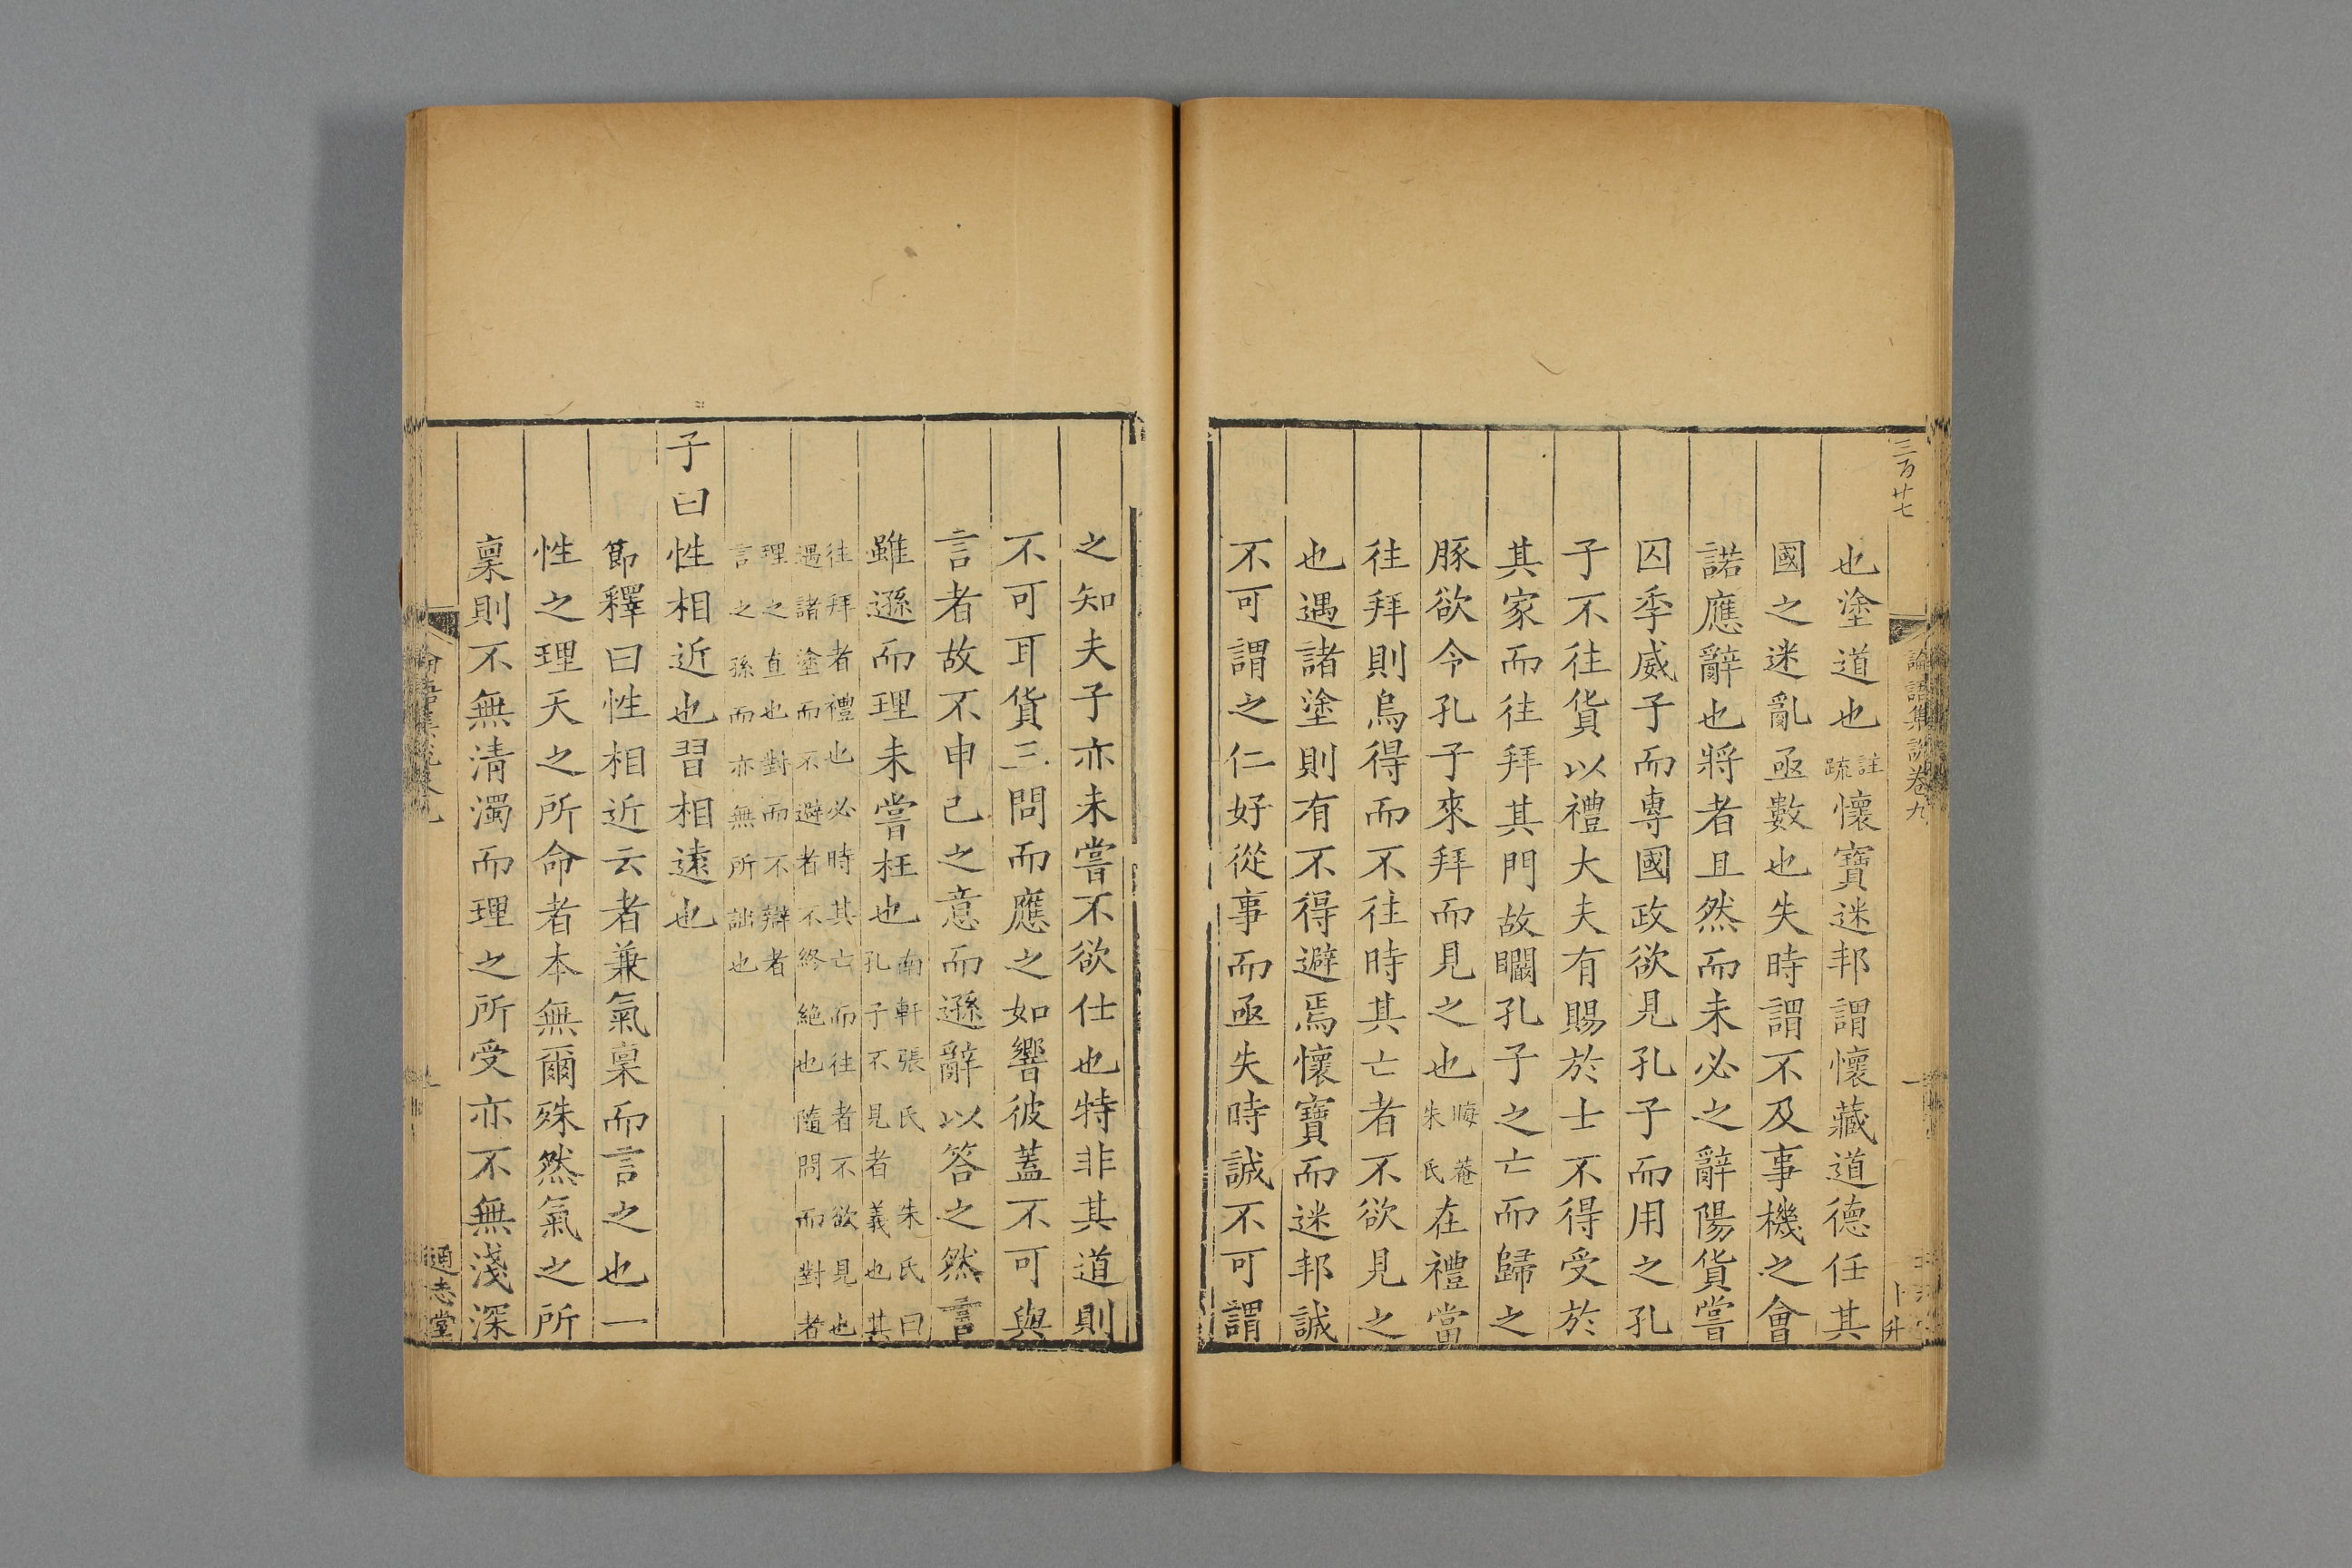 三百廿七
論語集說卷九
一
也塗道也註疏懷寶迷邦謂懷藏道德任其
國之迷亂亟數也失時謂不及事機之會
諾應辭也將者且然而未必之辭陽貨嘗
囚季威子而專國政欲見孔子而用之孔
子不往貨以禮大夫有賜於士不得受於
其家而往拜其門故瞷孔子之亡而歸之
豚欲令孔子來拜而見之也晦菴朱氏在禮當
往拜則烏得而不往時其亡者不欲見之
也遇諸塗則有不得避焉懷寶而迷邦誠
不可謂之仁好從事而亟失時誠不可謂
之知夫子亦未嘗不欲仕也特非其道則
不可耳貨三問而應之如響彼蓋不可與
言者故不申己之意而遜辭以答之然言
雖遜而理未嘗枉也南軒張氏 朱氏曰孔子不見者義也其
往拜者禮也必時其亡而往者不欲見也遇諸塗而不避者不終絶也隨問而對者
理之直也對而不辯者言之孫而亦無所詘也
子曰性相近也習相遠也
節釋曰性相近云者兼氣稟而言之也一
性之理天之所命者本無爾殊然氣之所
稟則不無清濁而理之所受亦不無淺深
通志堂